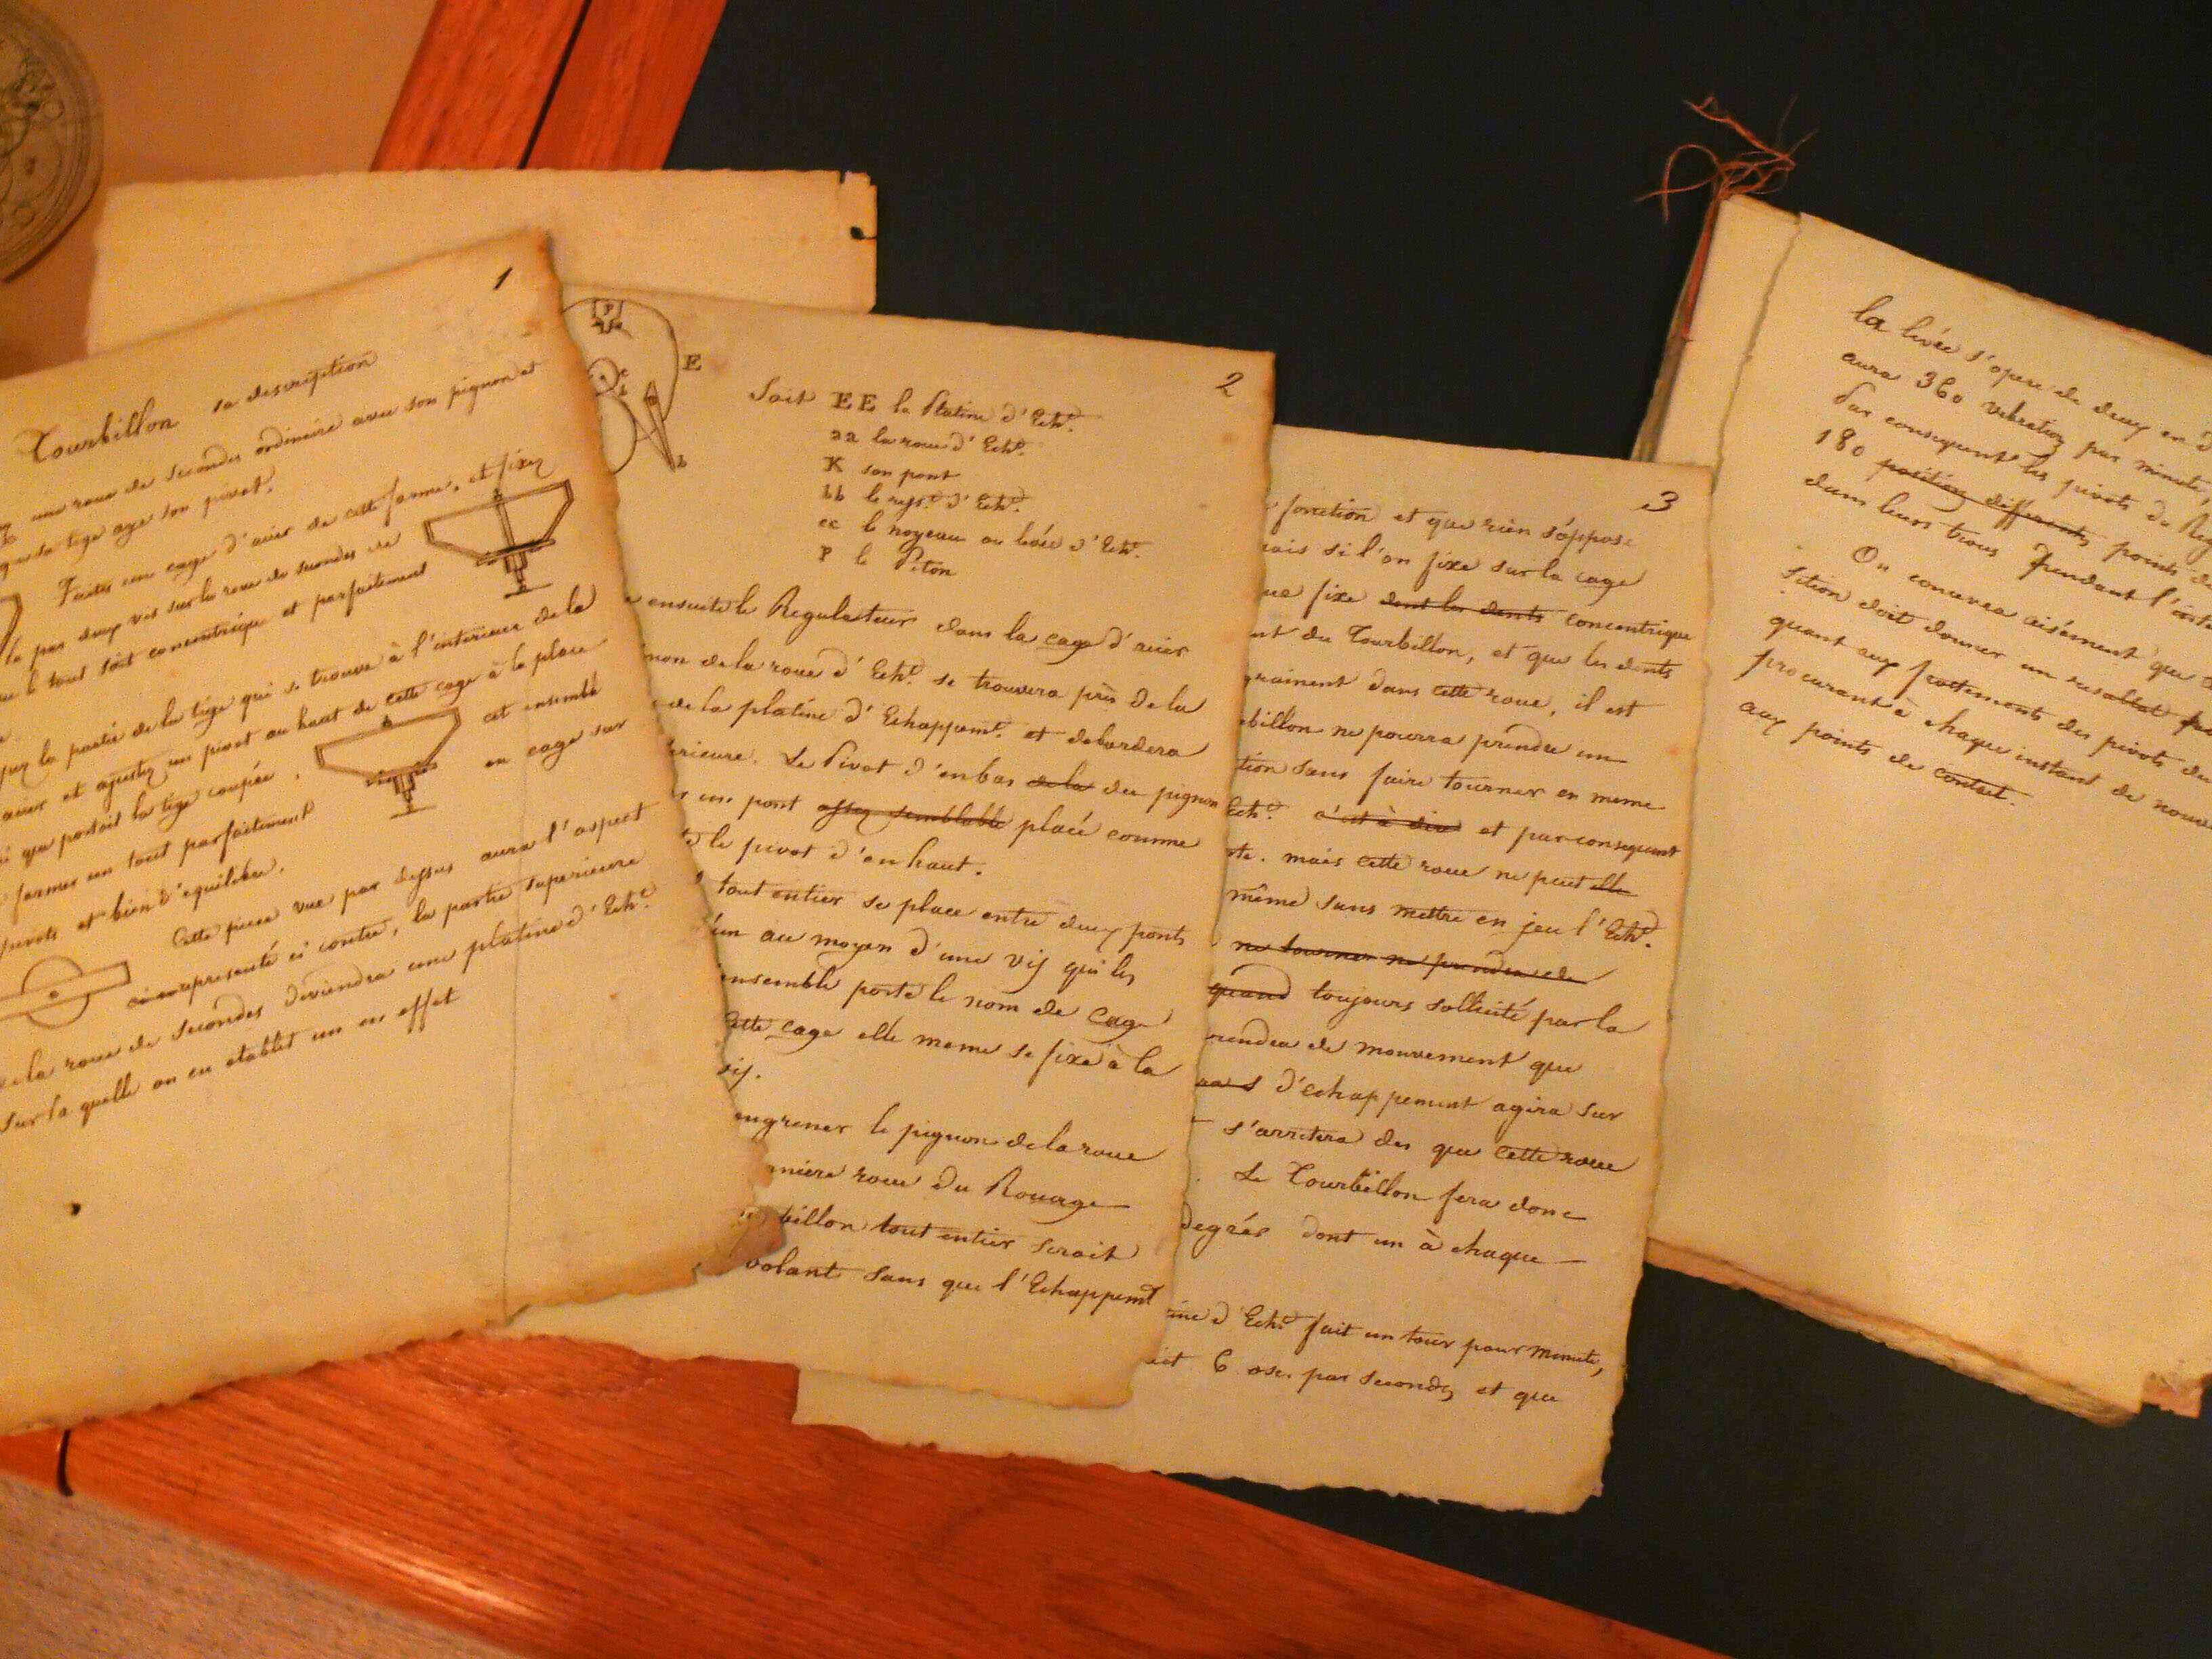 1
Tourbillon sa description
une roue de secondes ordinaire avec son pignon et
que sa tige aye son pivot.
Faites une cage d'acier de cette forme, et fixez
la par deux vis sur la roue de secondes
le tout soit concentrique et parfaitement
la partie de la tige qui se trouve à l'interieur de la
et ajustez un pivot au haut de cette cage à la place
que portoit la tige coupée, cet ensemble
former un tout parfaitement ou cage sur
pivots et bien d'equilibre.
Cette piece vue par dessus aura l'aspect
representé ci contre, la partie superieure
de la roue de secondes deviendra une platine d'Echt.
sur la quelle on en etablit un en effet
P
E
c
b
b
2
Soit EE la Platine d'Echt.
aa la roue d'Echt.
K son pont
bb le ress.t d'Echt.
cc le noyeau ou levée d'Echt.
P le Piton
ensuite le Regulateur dans la cage d'acier
de la roue d'Echt. se trouvera près de la
de la platine d'Echappemt. et debordera
Le Pivot d'enbas de la du pignon
un pont assez semblable placé comme
le pivot d'en haut.
tout entier se place entre deux ponts
au moyen d'une vis qui les
ensemble porte le nom de cage
cette cage elle meme se fixe à la
vis.
engrener le pignon de la roue
roue du Rouage
billon tout entier seroit
volant sans que l'Echappemt
3
fonction et que rien s'oppose
mais si l'on fixe sur la cage
fixe dont les dents concentrique
du Tourbillon, et que les dents
dans cette roue, il est
billon ne pourra prendre un
sans faire tourner en meme
Echt. c'est à dire et par consequent
mais cette roue ne peut elle
même sans mettre en jeu l'Echt.
ne tourner ne prendre de
quand toujours sollicité par la
de mouvement que
d'echappement agira sur
s'arretera des que cette roue
Le Tourbillon fera donc
degrés dont un à chaque
d'Echt fait un tour par minute,
6 osc. par secondes et que
la levée s'opere de deux en
aura 360 vibrations par minute,
Par consequent les pivots du
180 position differents points
dans leurs trous pendant
On concevra aisément que
sition doit donner un resultat
quant aux frottements des pivots du
procurant à chaque instant de
aux points de contact.